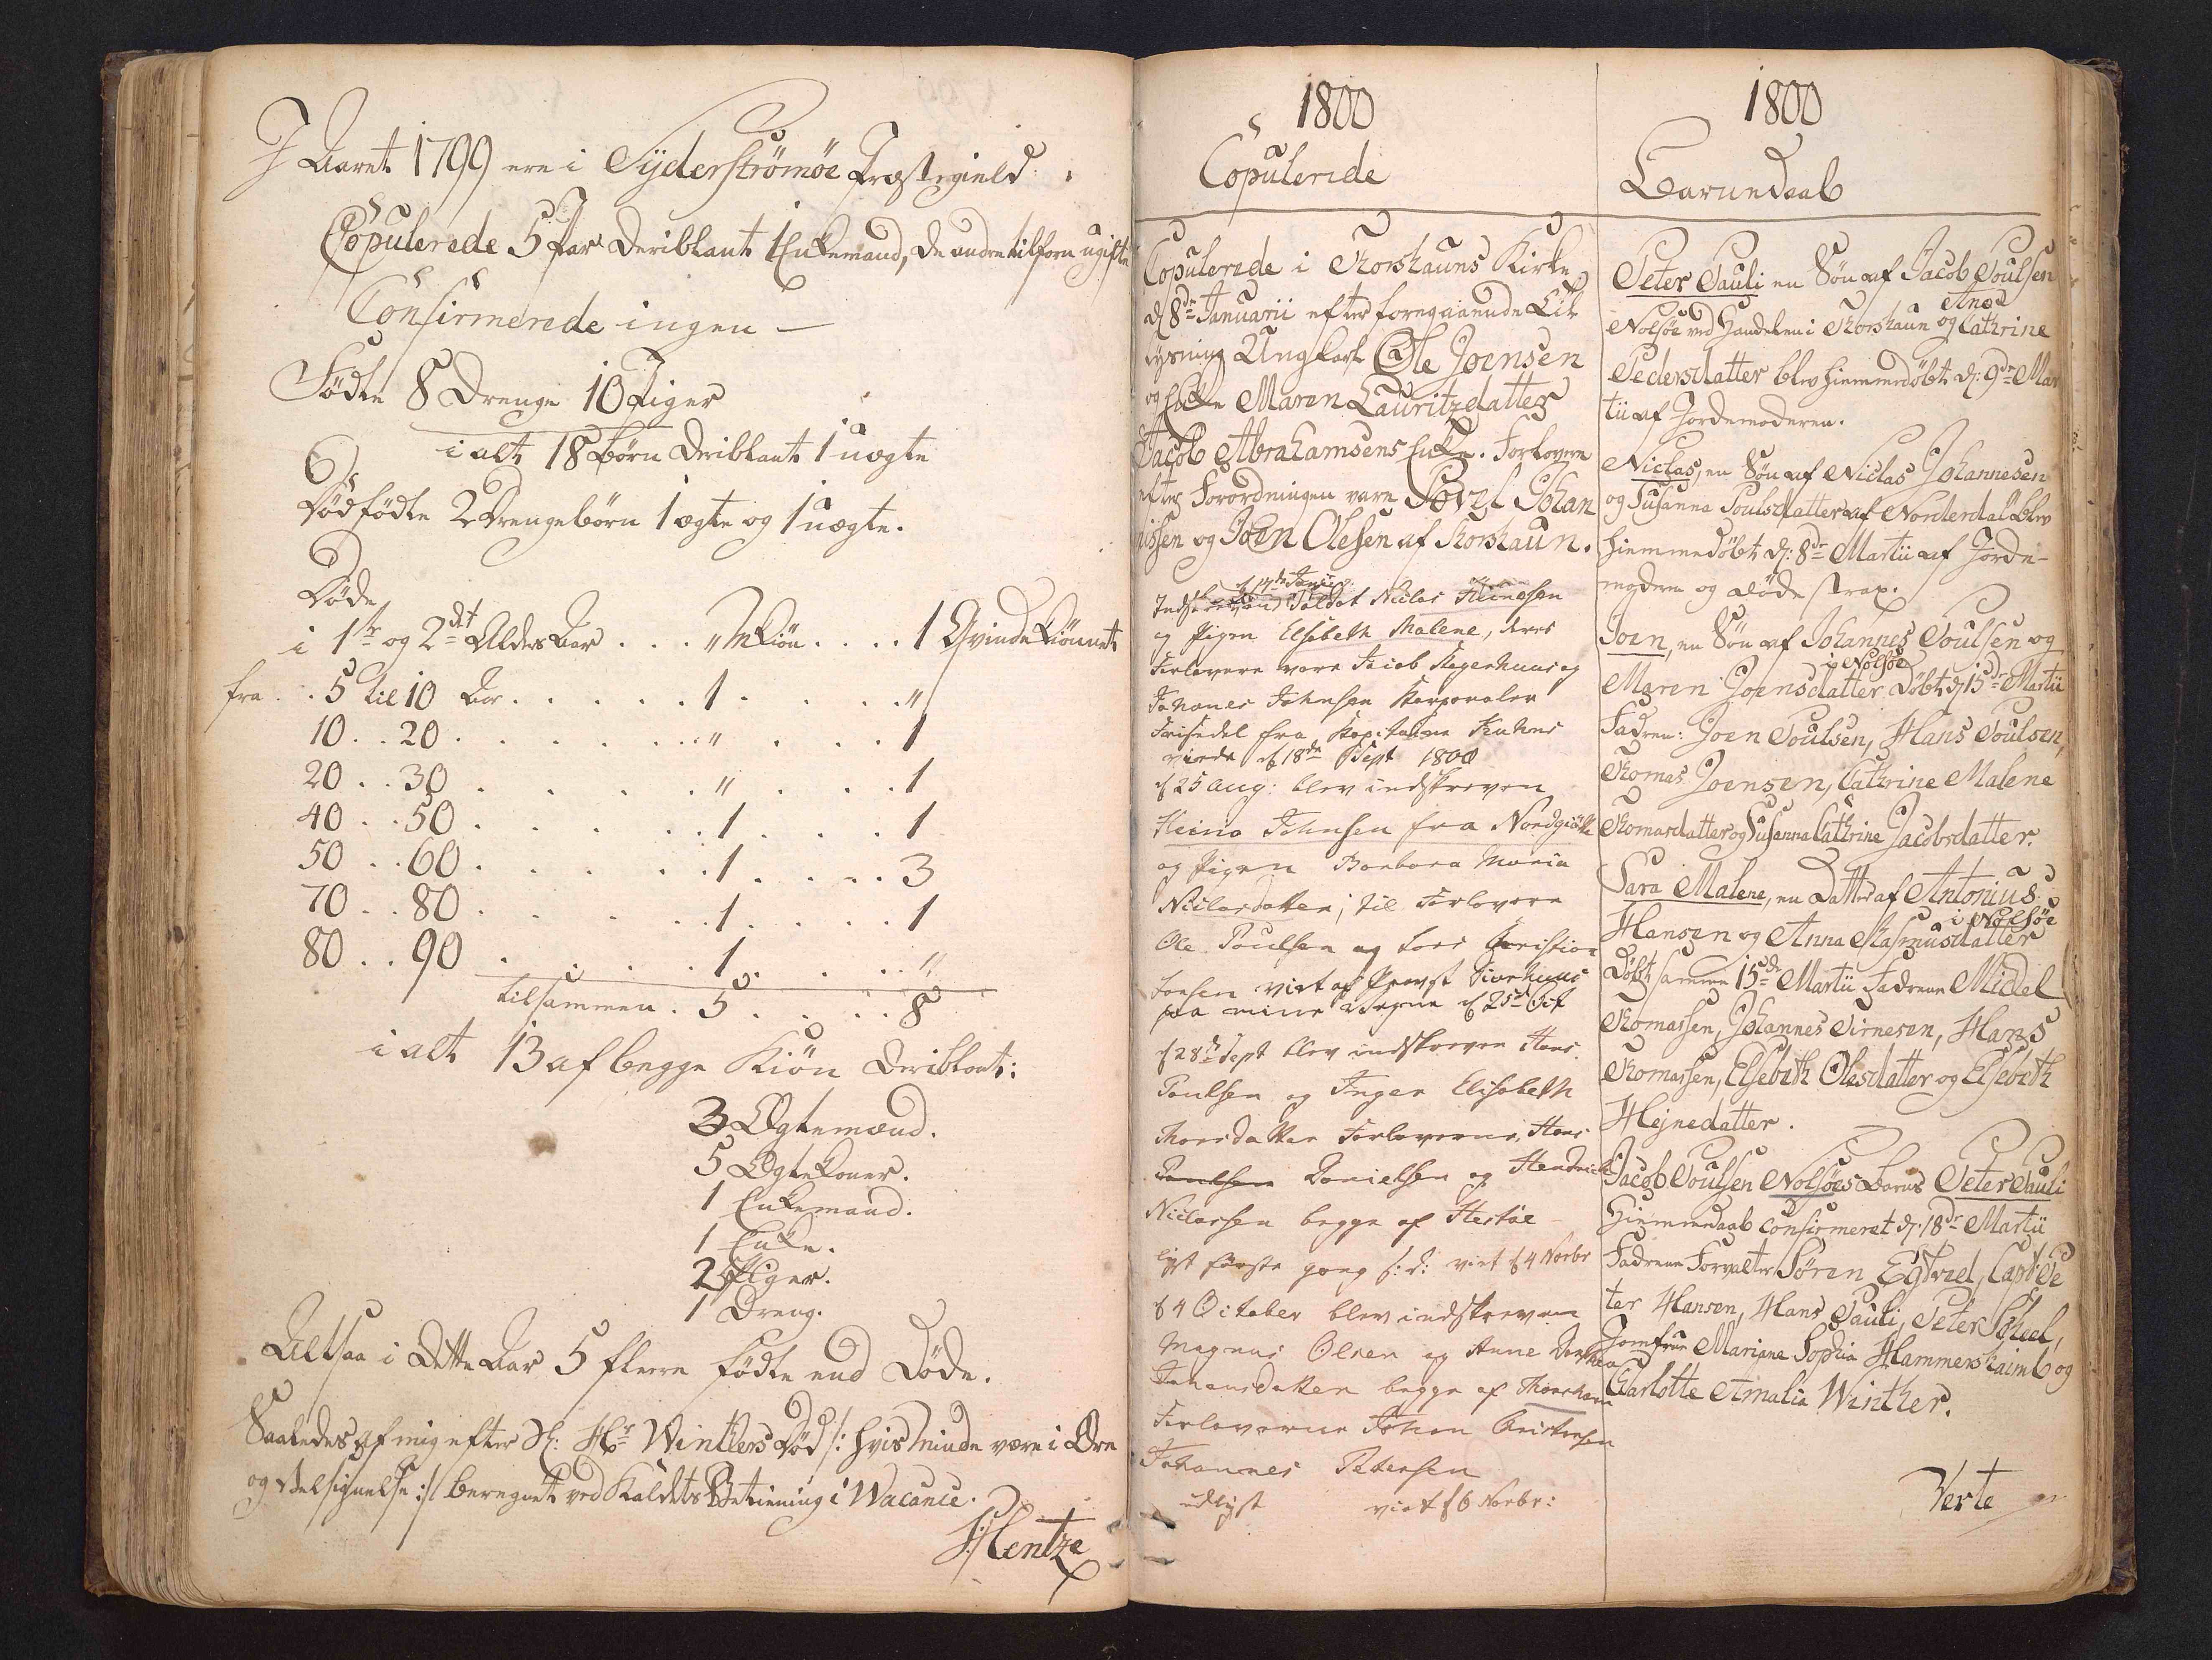 I Aaret 1799 ere i Syderströmöe Præstegield
Copulerede 5 Par deriblant 1 Enkemand, de andre tilforn ugifte
Confirmerede ingen —
Födte 8 Drenge 10 Piger
i alt 18 börn deriblant 1 uægte
Dödfödte 2 Drengebörn 1 ægte og 1 uægte.
Døde
i 1te og 2det Alders Aar . . . " MKiön . . . . 1 Qvindekiönnet
fra . . 5 til 10 Aar . . . . . 1 . . . . . "
10 . . 20 . . . . . . . " . . . . 1
20 . . 30 . . . . . " . . . . 1
40 . . 50 . . . . . . 1 . . . . 1
50 . . 60 . . . . . . 1 . . . . 3
70 . . 80 . . . . . . 1 . . . . 1
80 . . 90 . . . . . 1 . . . . "
tilsammen . 5 . . . . 8
i alt 13 af begge Kiön deriblant:
3 Ægtemænd.
5 Ægtekoner.
1 Enkemand.
1 Enke.
2 Piger.
1 Dreng.
Altsaa i dette Aar 5 flere födte end Döde.
Saaledes af mig efter S: Hr Winthers Död /: hvis Minde være i Ære
og Velsignelse :/ beregnet ved Kaldets Betiening i Vacance.
Hentze
1800
Copulerede
Copulerede i Thorshauns Kirke
d 8de Januarii efter foregaaende Til
lysning Ungkarl Ole Joensen
og Enke Maren Lauritzdatter
Jacob Abrahamsens Enke. Forlovere
efter Forordningen vare Povel Johan
nissen og Joen Olesen af Thorshaun.
d 14de Junii
Indskreven Soldat Niclas Heinesen
og Pigen Elsebeth Malene, deres
Forlovere vare Jacob og
Johanes Johnsen Korporaler
fra
viede d 18de Sept 1800
d 25 Aug: blev indskreven
Heine Johnsen fra Nordgiöte
og Pigen Barbara Maria
Niclasdatter; til Forlovere
Ole Poulsen og Christian
Joensen viet af Provst
paa mine Vegne d 25de Oct
d 28de Sept blev indskreven Hans
Poulsen og Inger Elisabeth
Thorsdatter Forloverne, Hans
Poulsen Danielsen og Hendrick
Niclassen begge af Hestöe
lyst förste gang s: d: viet d 4 Novbr
d 4 October blev indskreven
Magnus Olsen og Anne Dorthea
Johansdatter begge af Thorshavn
Forloverne Johan Christensen
Johannes Petersen
udlyst viet d 6 Novbr:
1800
Barnedaab
Peter Pauli en Sön af Jacob Poulsen
Nolsöe ved Handelen i Thorshaun og Anne Cathrine
Pedersdatter blev hiemmedöbt d: 9de Mar
tii af Jordemoderen.
Niclas, en Sön af Niclas Johannesen
og Susanna Poulsdatter af Norderdal blev
hiemmedöbt d: 8de Martii af Jorde-
moderen og döde strax.
Joen, en Sön af Johannes Poulsen og
Maren Joensdatter i Nolsöe döbt d 15de Martii
Fadrene: Joen Poulsen, Hans Poulsen,
Thomas Joensen, Cathrine Malene
Thomasdatter og Susanna Cathrine Jacobsdatter.
Sara Malene, en Datter af Antonius
Hansen og Anna Rasmusdatter i Nolsöe
Döbt samme 15de Martii Fadrene Michel
Thomassen, Johannes Dirnesen, Hans
Thomassen, Elsebeth Olesdatter og Elsebeth
Hejnedatter.
Jacob Poulsen Nolsöes Barns Peter Pauli
Hiemmedaab confirmeret d: 18de Martii
Fadrene Forvalter Sören Egtved, Capt: Pe
ter Hansen, Hans Pauli, Peter Scheel,
Jomfrue Mariane Sophia Hammershaimb og
Charlotte Amalia Winther.
Verte